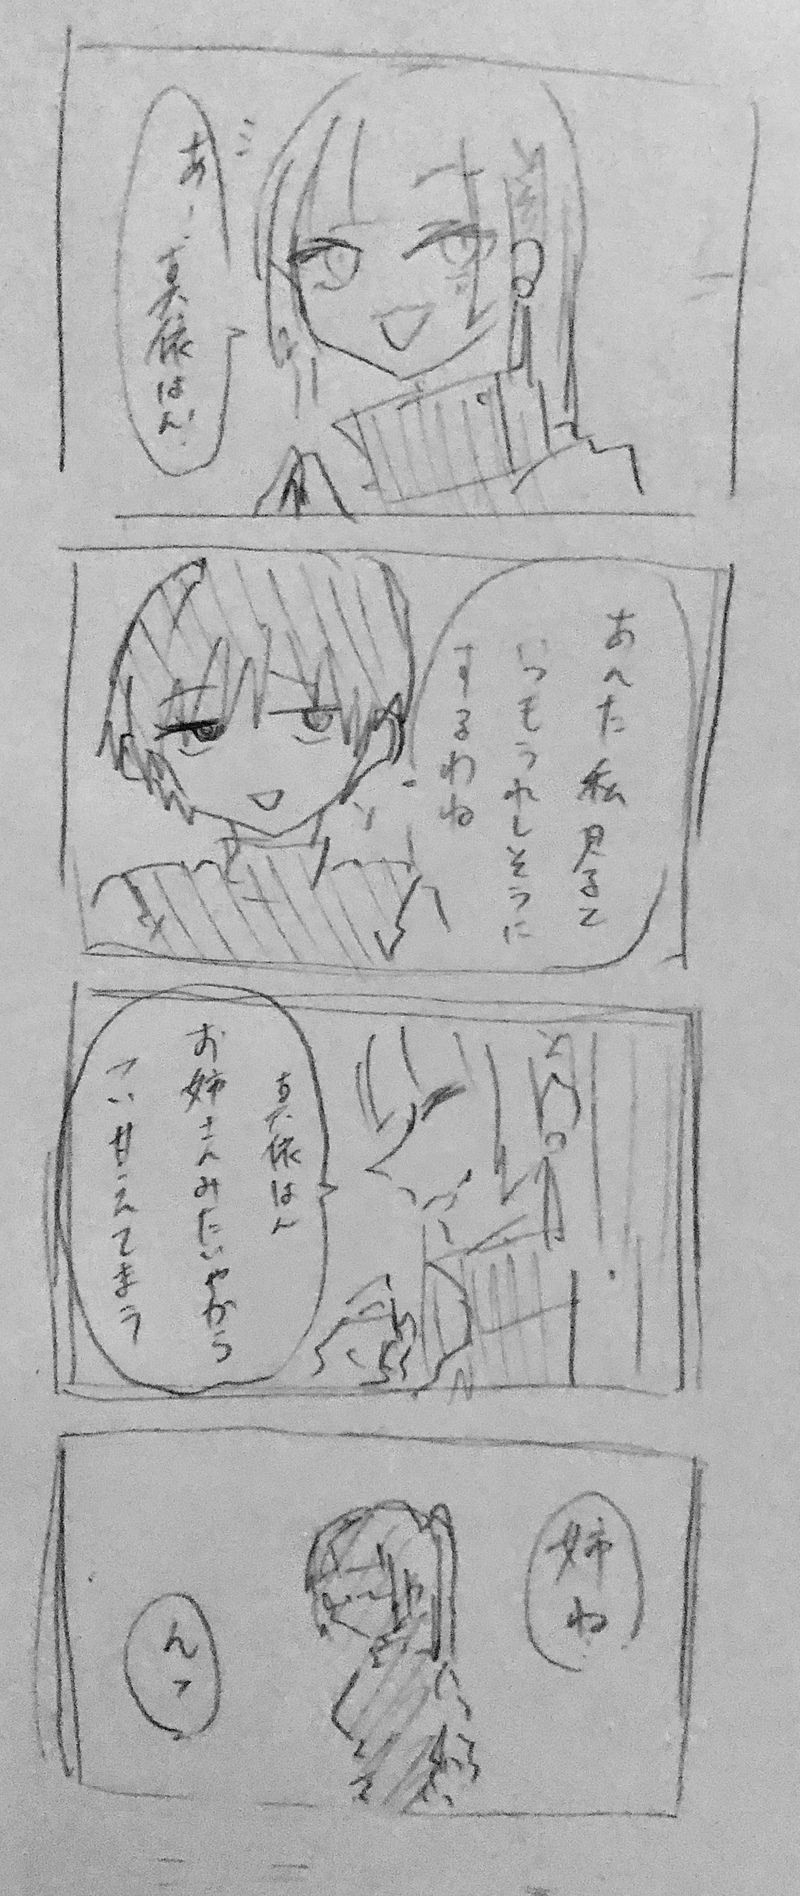 あー、真依はん!
あんた私見ると
いつもうれしそうに
するわね
真依はん
お姉さんみたいやから
つい甘えてまう
姉ね
んー